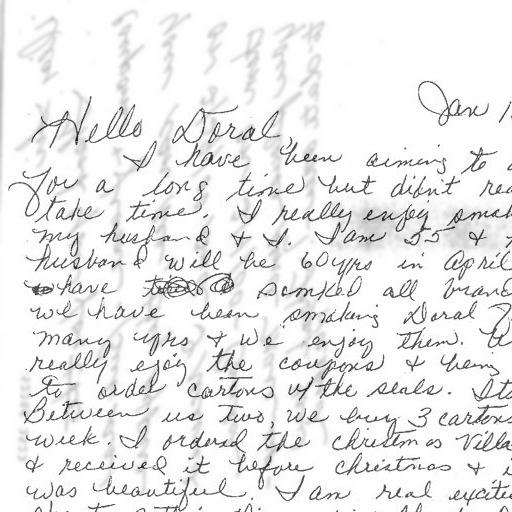 Jan 1
Hello Doral,
I have been aiming to
you a long time but didn't
take time. I really enjoy
my husband & I. I am 55 &
husband will be 60yrs in April
have scmked all
we have been smoking Doral
many yrs & we enjoy them.
really ejoy the coupons & being
to order cartons of the seals. Its
Between us two, we buy 3 cartons
week. I ordered the christmas Villa
& received it before christmas &
was beautiful. I am real